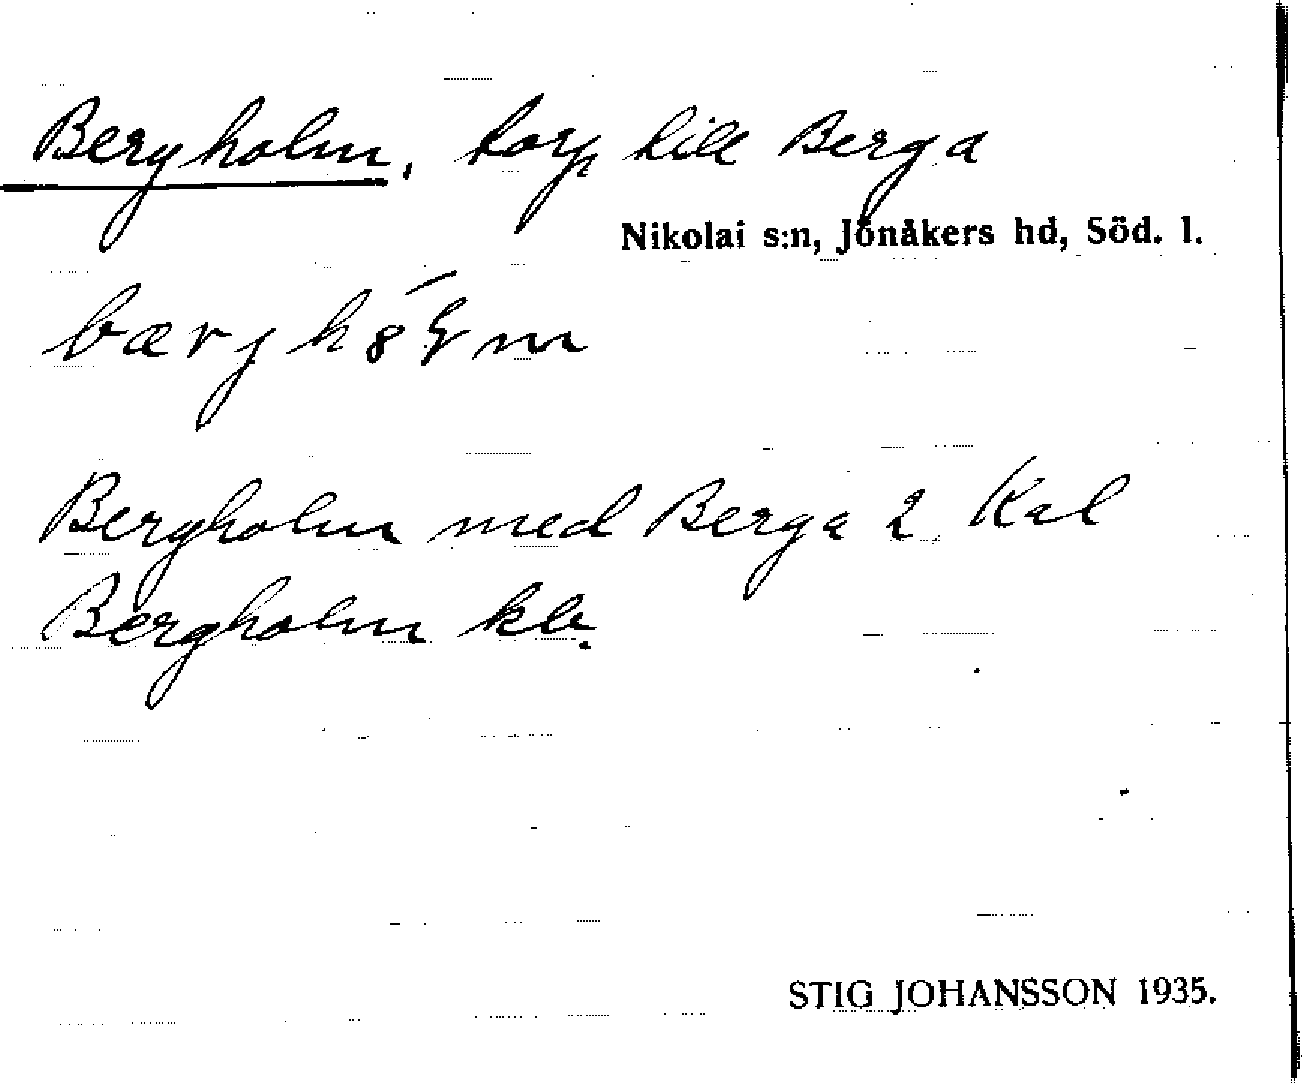 Bergholm, torp till Berga
Nikolai s:n, Jönåkers hd, Söd. l.
Bergholm med Berga 2 Kal
Bergholm kb.
STIG JOHANSSON 1935.